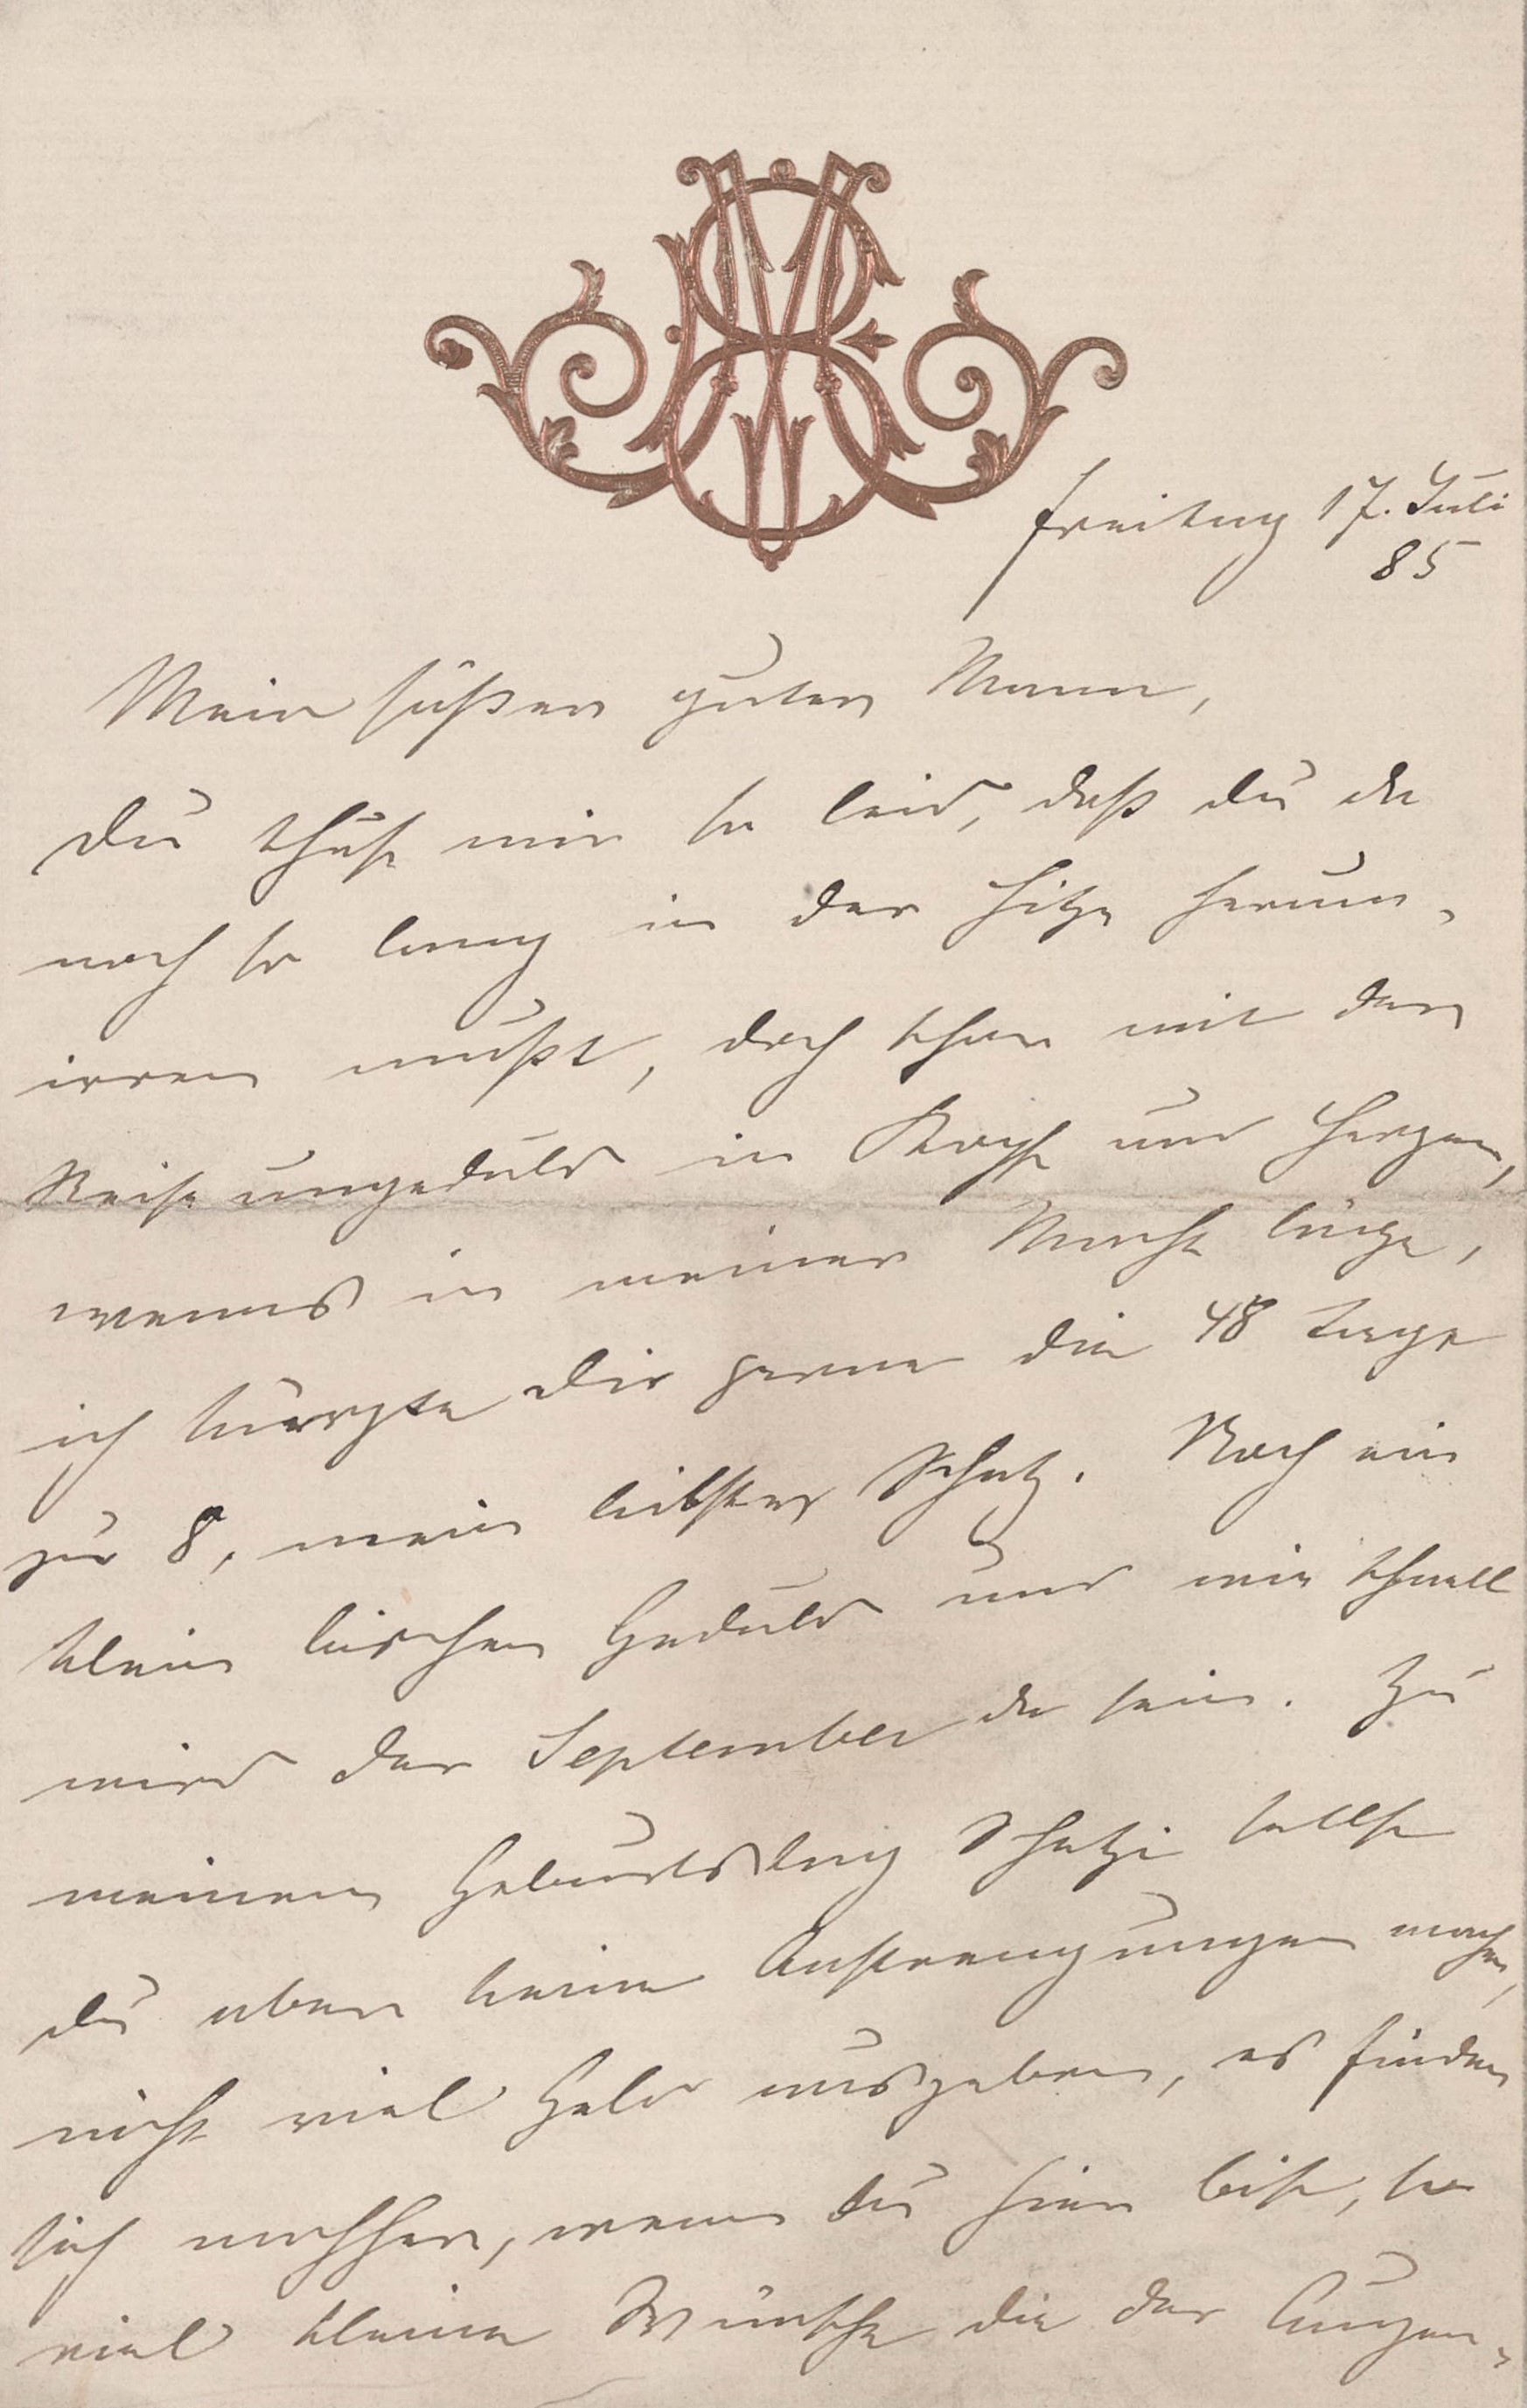 Freitag 17. Juli
85
Mein süßer guter Mann,
Du thust mir so leid, daß du da
noch so lang in der Hitze herum-
irren mußt, doch schon mit der
Reise ungeduld in Kopf und Herzen,
wenns in meiner Macht läge,
ich kürzte dir gerne die 48 Tage
zu 8, mein liebster Schatz. Noch ein
klein bischen Geduld und wie schnell
wird der September da sein. Zu
meinem Geburtstag Schatzi sollst
du aber keine Anstrengungen machen,
nicht viel Geld ausgeben, es finden
sich nachher, wenn du hier bist, so
viel kleine Wünsche die der Augen-